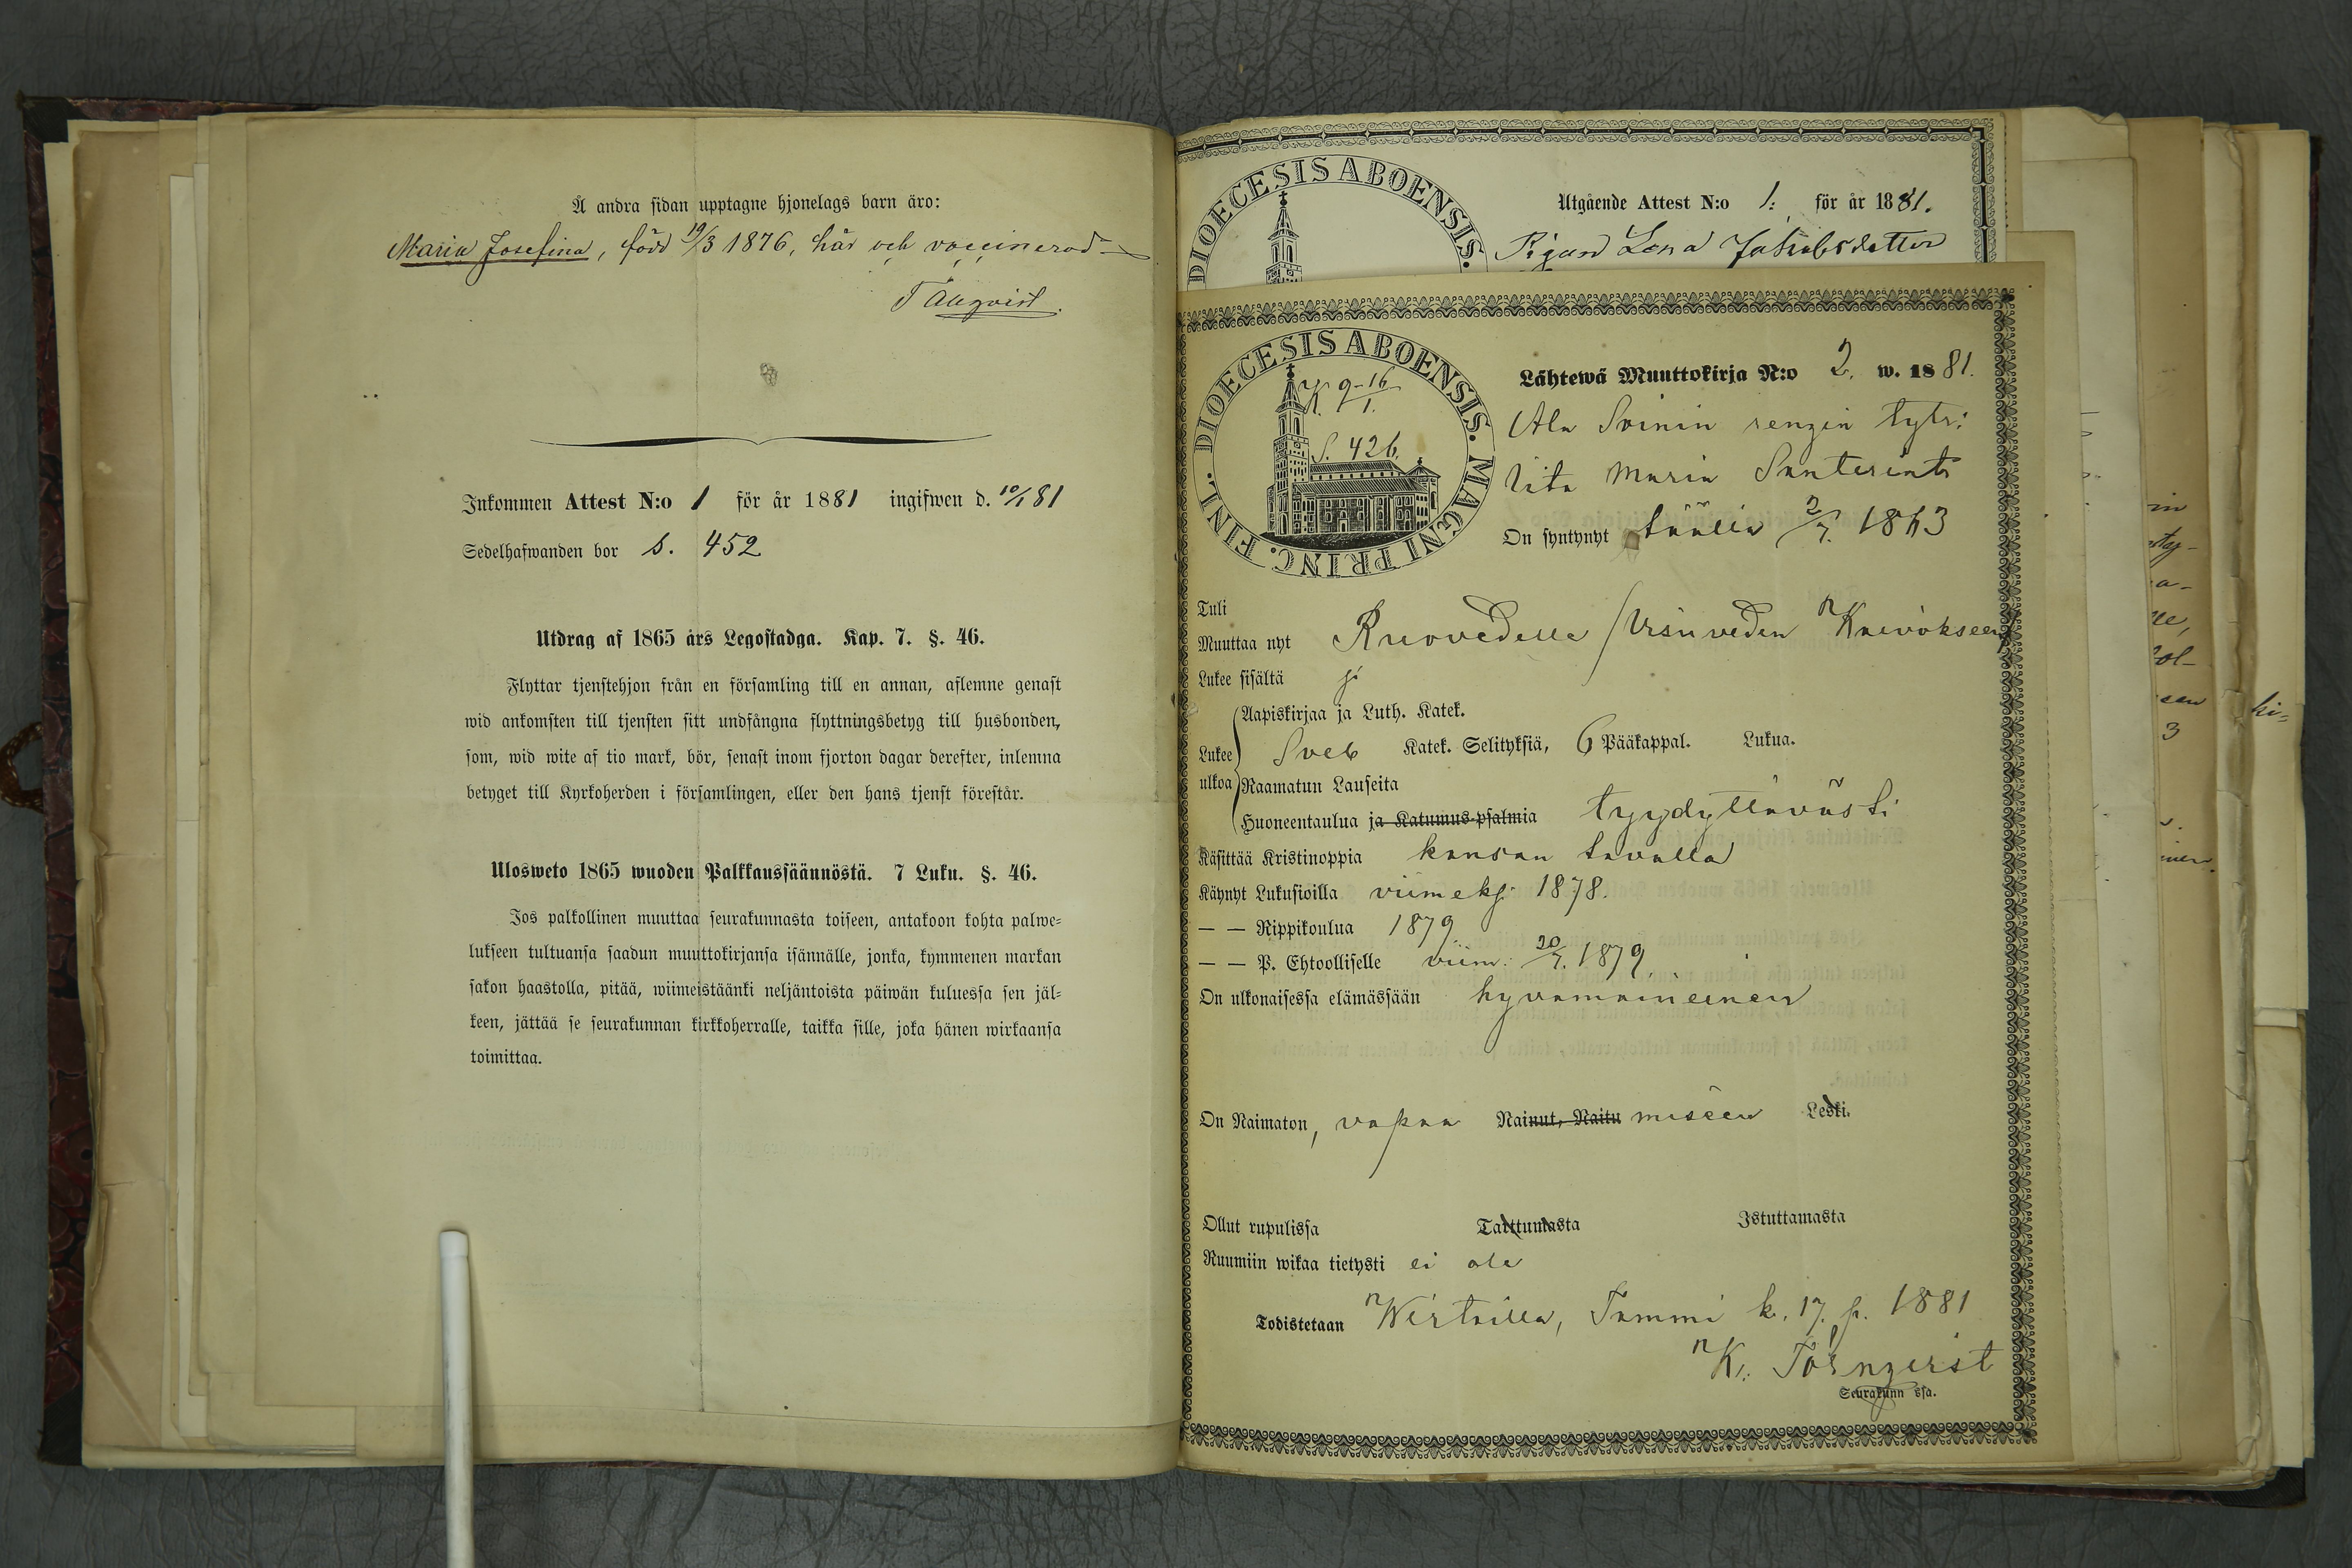 Å andra sidan upptagne hjonelags barn äro:
Maria Josefina, född 19/3 1876, här och vaccinerad
Inkommen Attest N:o 1 för år 1881 ingifwen d. 10/1 81
Sedelhafwanden bor S. 452
Utdrag af 1865 års Legostadga. Kap. 7. §. 46.
Flyttar tjenstehjon från en församling till en annan, aflemne genast
wid ankomsten till tjensten sitt undfångna flyttningsbetyg till husbonden,
som, wid wite af tio mark, bör, senast inom fjorton dagar derefter, inlemna
betyget till Kyrkoherden i församlingen, eller den hans tjenst förestår.
Ulosweto 1865 wuoden Palkkaussäännöstä. 7 Luku. §. 46.
Jos palkollinen muuttaa seurakunnasta toiseen, antakoon kohta palwe-
lukseen tultuansa saadun muuttokirjansa isännälle, jonka, kymmenen markan
sakon haastolla, pitää, wiimeistäänki neljäntoista päiwän kuluessa sen jäl-
keen, jättää se seurakunnan kirkkoherralle, taikka sille, joka hänen wirkaansa
toimittaa.
DIOECESIS ABOENSIS.
Utgående Attest N:o 1. för år 1881.
Pigan Lena Jakobsdotter
DIOECESIS ABOENSIS. MAGNI PRINC. FINL.
9-16
1.
S. 426.
Lähtewä Muuttokirja N:o 2. w. 1881.
Ala Svinin rengin tytr:
Maria Santerint
On syntynyt täällä 2/7. 1863
Tuli
Muuttaa nyt Ruovedelle / Visuveden
Lukee sisältä
Aapiskirjaa ja Luth. Katek.
Lukee ulkoa Sveb Katek. Selityksiä, 6 Pääkappal. Lukua.
Raamatun Lauseita
Huoneentaulua ja Katumus-psalmia tyydyttävästi
Käsittää Kristinoppia kansan tavalla
Käynyt Lukusioilla viimeksi 1878.
— — Rippikoulua 1879
— — P. Ehtoolliselle viim. 20/7. 1879.
On ulkonaisessa elämässään hyvämaineinen
On Naimaton, vapaa Nainut, Naitu Leski.
Ollut rupulissa Tarttumasta Istuttamasta
Ruumiin wikaa tietysti ei ole
Todistetaan Wirtailla, Tammi k. 17. p. 1881
K. Törnqvist
Seurakunn ssa.